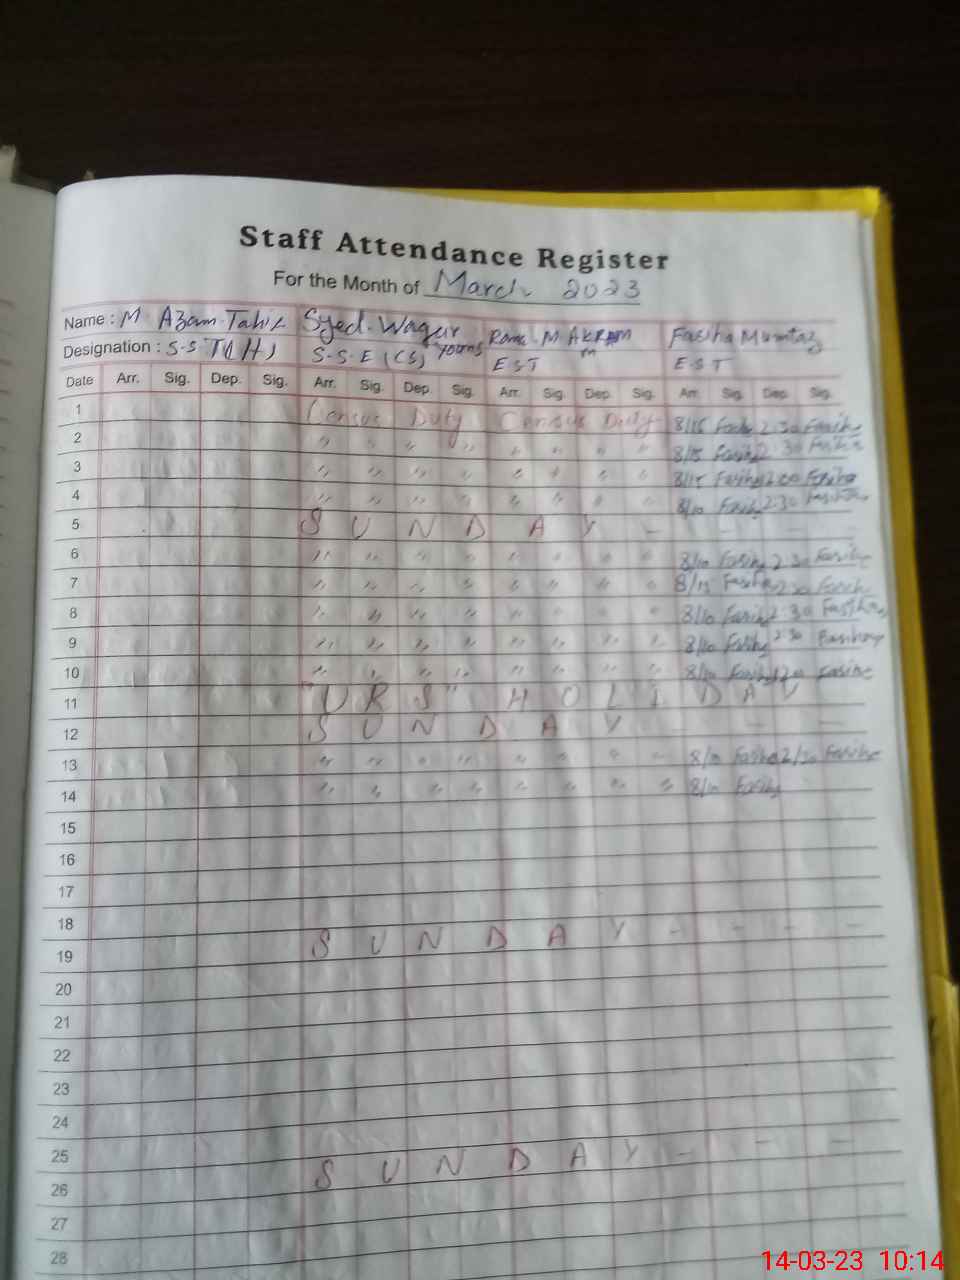 Staff Attendance Register
For the Month of March 2023
Name : M. Azam Tahir Syed Waqur Youns Rana M AKRAM Fasiha Mumtaz
Designation : S-S-T(H) S-S-E (CS) EST E-S-T
Date Arr. Sig. Dep. Sig. Arr. Sig. Dep. Sig. Arr. Sig. Dep. Sig. Arr. Sig. Dep. Sig.
1 Census Duty Census Duty 8/15 Fasiha 2:30 Fasiha
2 〃 〃 〃 〃 〃 〃 〃 〃 8/15 Fasiha 2:30 Fasiha
3 〃 〃 〃 〃 〃 〃 〃 〃 8/15 Fasiha 2:00 Fasiha
4 〃 〃 〃 〃 〃 〃 〃 〃 8/10 Fasiha 2:30 Fasiha
5 S U N D A Y - - - -
6 〃 〃 〃 〃 〃 〃 〃 〃 8/10 Fasiha 2:30 Fasiha
7 〃 〃 〃 〃 〃 〃 〃 〃 8/15 Fasiha 2:30 Fasiha
8 〃 〃 〃 〃 〃 〃 〃 〃 8/10 Fasiha 2:30 Fasiha
9 〃 〃 〃 〃 〃 〃 〃 〃 8/10 Fasiha 2:30 Fasiha
10 〃 〃 〃 〃 〃 〃 〃 〃 8/10 Fasiha Fasiha
11 "U R S" H O L I D A Y
12 S U N D A Y - - -
13 〃 〃 〃 〃 〃 〃 〃 〃 8/10 Fasiha 2/30 Fasiha
14 〃 〃 〃 〃 〃 〃 〃 〃 8/10 Fasiha
15
16
17
18
19 S U N D A Y - - - -
20
21
22
23
24
25
26 S U N D A Y - - - -
27
28
14-03-23 10:14